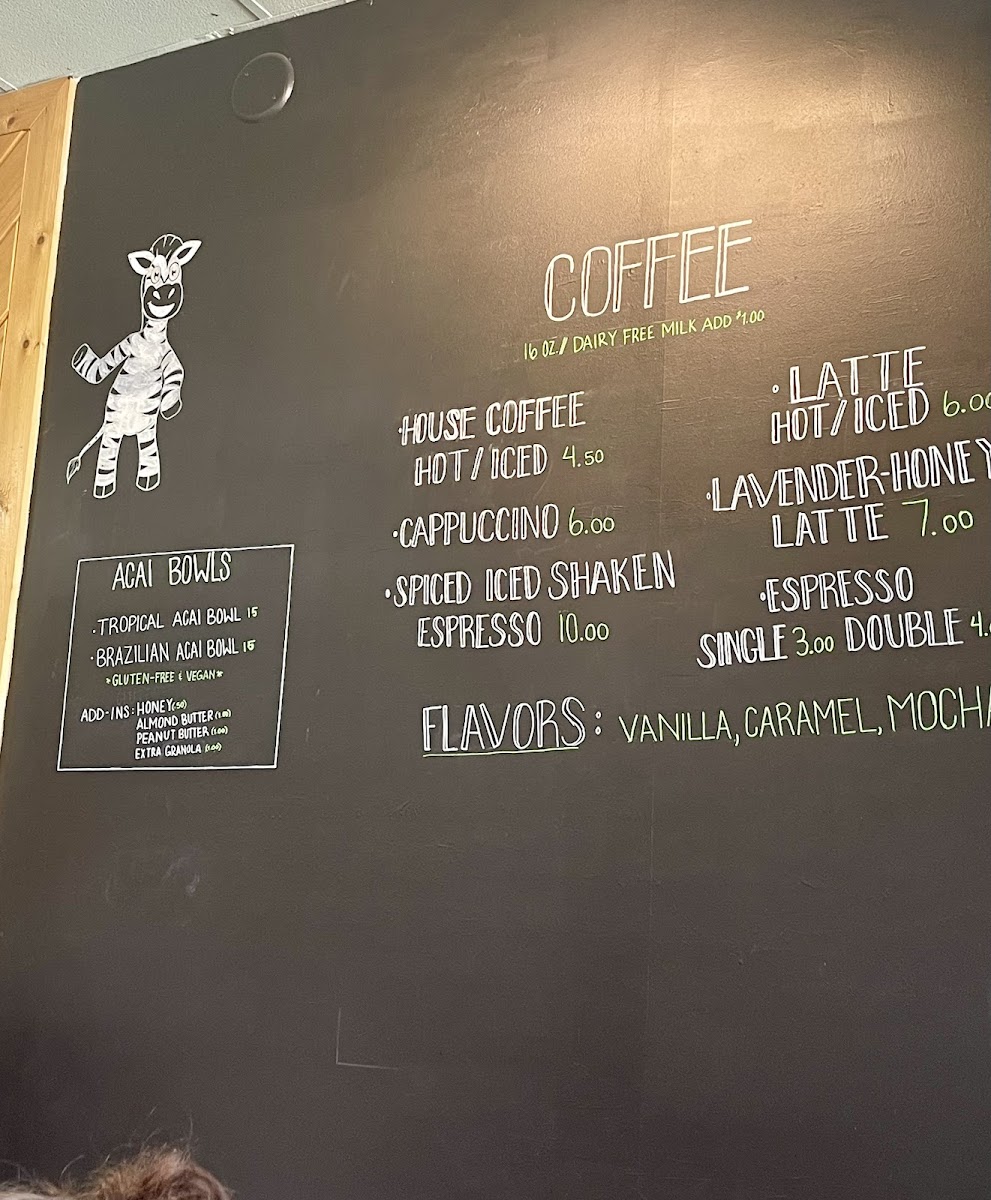 COFFEE
16 OZ. // DAIRY FREE MILK ADD $1.00
·HOUSE COFFEE
HOT/ICED 4.50
·CAPPUCCINO 6.00
·SPICED ICED SHAKEN
ESPRESSO 10.00
·LATTE
HOT/ICED 6.00
·LAVENDER-HONEY
LATTE 7.00
·ESPRESSO
SINGLE 3.00 DOUBLE
FLAVORS: VANILLA, CARAMEL, MOCHA
ACAI BOWLS
·TROPICAL ACAI BOWL 15
·BRAZILIAN ACAI BOWL 15
*GLUTEN-FREE & VEGAN*
ADD-INS: HONEY (.50)
ALMOND BUTTER (1.00)
PEANUT BUTTER (1.00)
EXTRA GRANOLA (1.00)